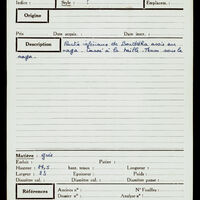 Indice : Style : ? Emplacem. :
Origine
Prix Date acquis. : Date inscr. :
Description Partie inférieure de Bouddha assis au
naga. Cassé à la taille. Tenon sous le
naga.
Matière : grès
Endroit : Patine :
Hauteur : haut. tenon : Longueur :
Largeur : Epaisseur : Poids :
Diamètre cul. : Diamètre panse :
Références Anciens n° : N° Fouilles :
Dossier n° : Analyse n° :